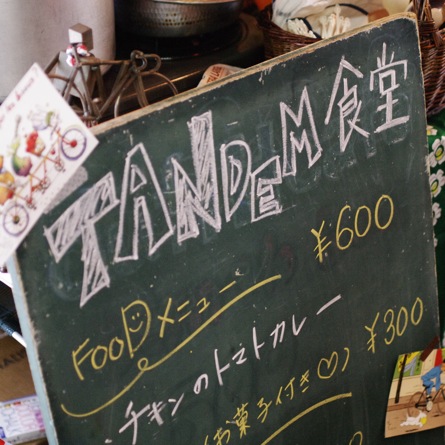 TANDEM食堂
FOODメニュー ¥600
・チキンのトマトカレー
(お菓子付き♡) ¥300